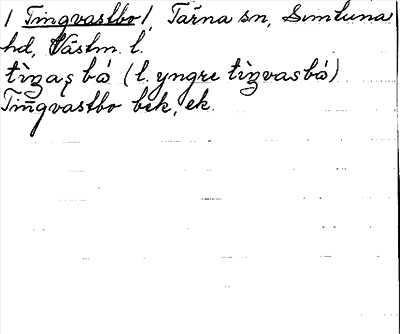 / Tingvastbo /, Tärna sn, Simtuna
hd, Västm. l.
tìŋas bó (l. yngre tìŋvasbó)
Tingvastbo bek, ek.